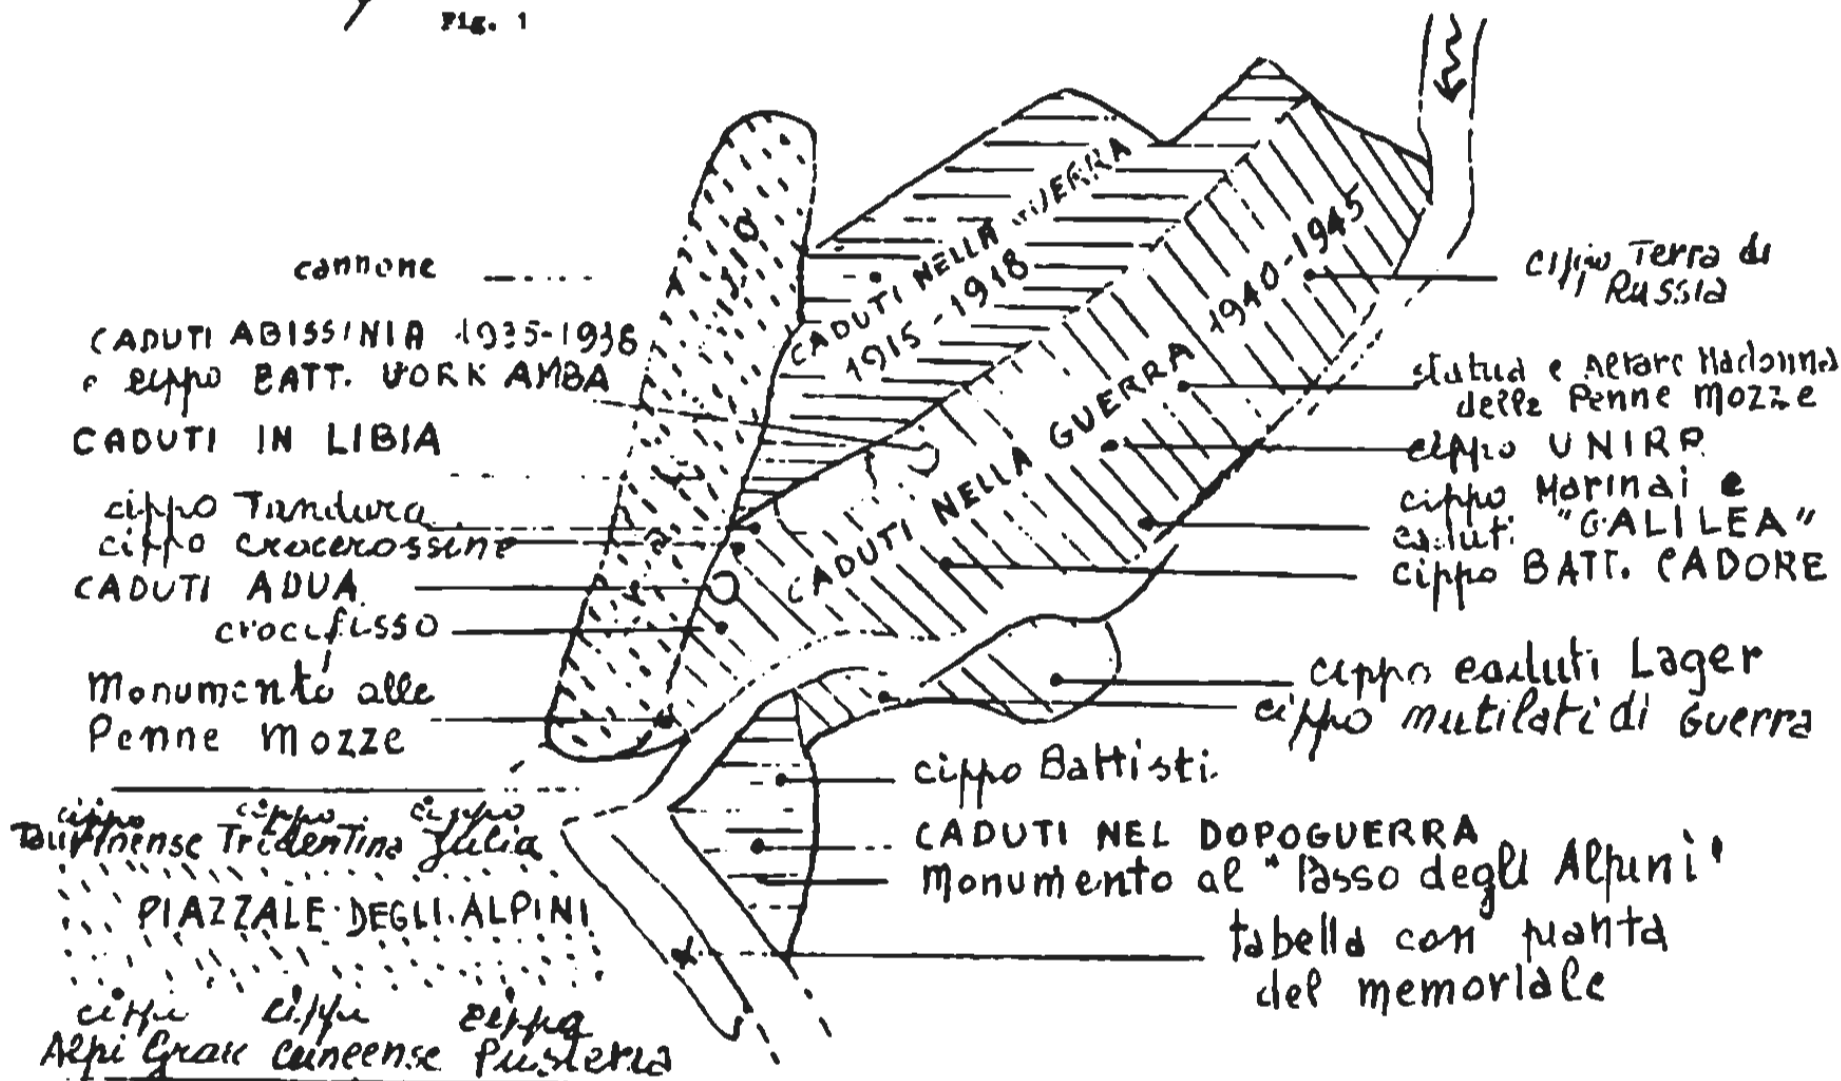 Fig. 1
cannone
CADUTI ABISSINIA 1935-1936
e cippo BATT. WORK AMBA
CADUTI IN LIBIA
cippo Tandura
cippo crocerossine
CADUTI ADUA
crocifisso
Monumento alle
Penne Mozze
cippo cippo cippo
Taurinense Tridentina Julia
PIAZZALE DEGLI ALPINI
cippo cippo cippo
Alpi Graie Cuneense Pusteria
CADUTI NELLA GUERRA
1915-1918
CADUTI NELLA GUERRA 1940-1945
cippo Terra di
Russia
statua e altare Madonna
delle Penne Mozze
cippo UNIRR
cippo Marinai e
caduti "GALILEA"
cippo BATT. CADORE
cippo caduti Lager
cippo mutilati di Guerra
cippo Battisti
CADUTI NEL DOPOGUERRA
Monumento al "Passo degli Alpini"
tabella con pianta
del memoriale